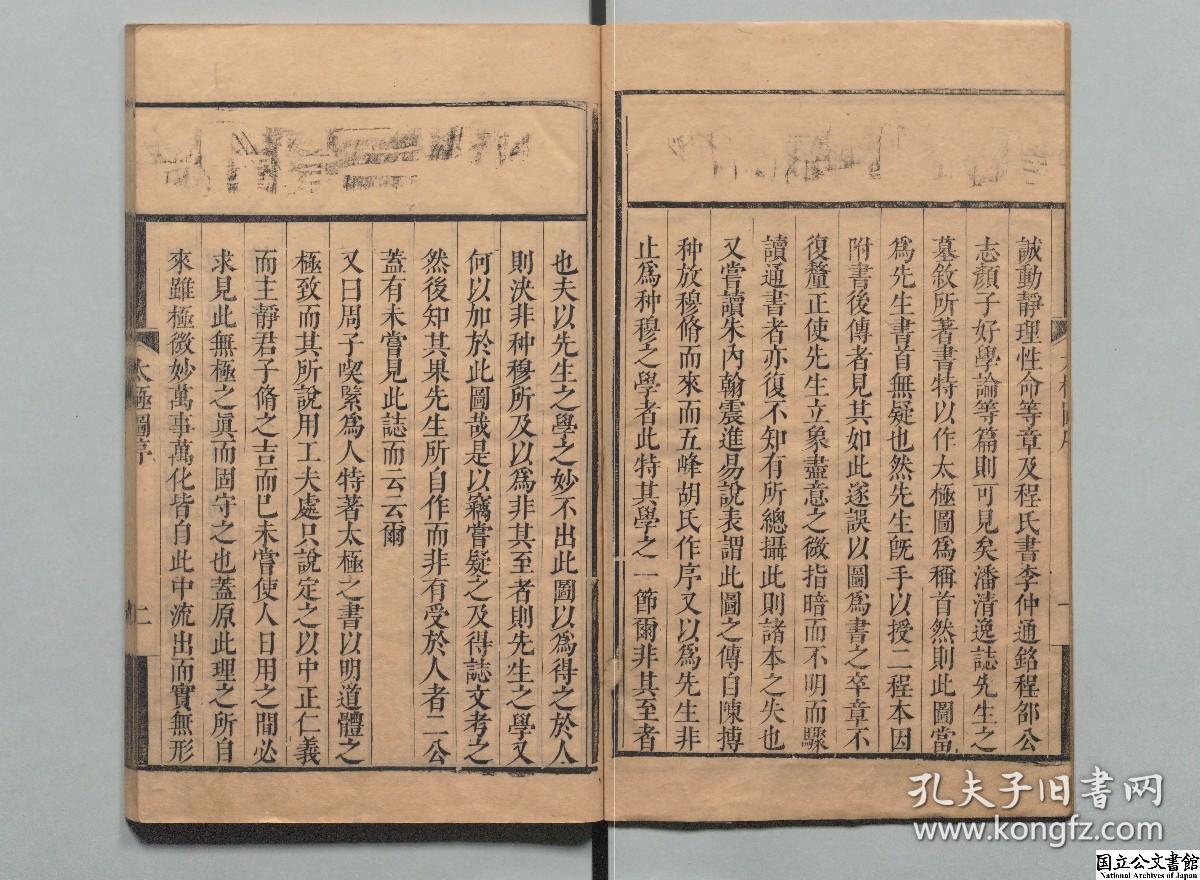 誠動靜理性命等章及程氏書李仲通銘程邵公
志顏子好學論等篇則可見矣潘清逸誌先生之
墓敘所著書特以作太極圖爲稱首然則此圖當
爲先生書首無疑也然先生旣手以授二程本因
附書後傳者見其如此遂誤以圖爲書之卒章不
復釐正使先生立象盡意之微指暗而不明而驟
讀通書者亦復不知有所總攝此則諸本之失也
又嘗讀朱內翰震進易說表謂此圖之傳自陳摶
种放穆脩而來而五峰胡氏作序又以爲先生非
止爲种穆之學者此特其學之一節爾非其至者
也夫以先生之學之妙不出此圖以爲得之於人
則決非种穆所及以爲非其至者則先生之學又
何以加於此圖哉是以竊嘗疑之及得誌文考之
然後知其果先生所自作而非有受於人者二公
蓋有未嘗見此誌而云云爾
又曰周子喫緊爲人特著太極之書以明道體之
極致而其所說用工夫處只說定之以中正仁義
而主靜君子脩之吉而已未嘗使人日用之間必
求見此無極之眞而固守之也蓋原此理之所自
來雖極微妙萬事萬化皆自此中流出而實無形
太極圖序
二
孔夫子旧书网
www.kongfz.com
国立公文書館
National Archives of Japan